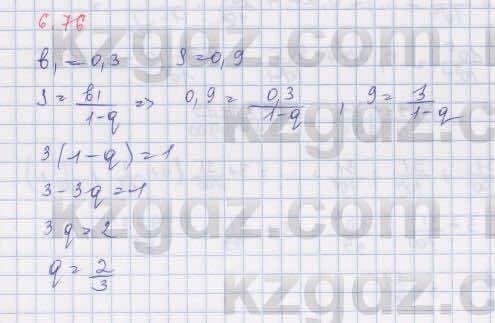 6.76
b₁ = 0,3 S = 0,9
S = b₁/(1-q) => 0,9 = 0,3/(1-q) , 9 = 3/(1-q)
3(1-q) = 1
3-3q = 1
3q = 2
q = 2/3
kzgdz.com
kzgdz.com
kzgdz.com
kzgdz.com